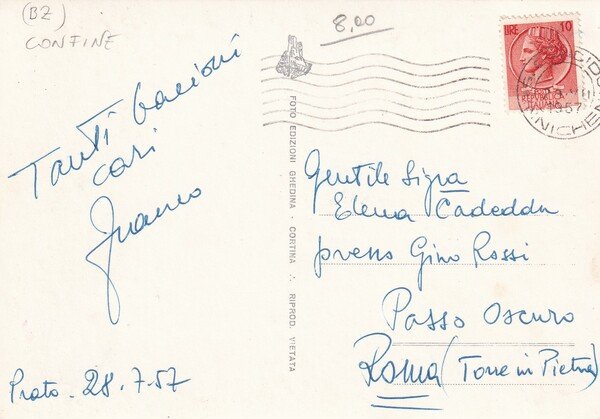 (BZ)
CONFINE
8,00
LIRE 10
1957
Tanti bacioni
cari
Prato - 28.7.57
FOTO EDIZIONI GHEDINA - CORTINA ∴ RIPROD. VIETATA
Gentile Sigra
Elena Cadeddu
presso Gino Rossi
Passo Oscuro
Roma (Torre in Pietra)